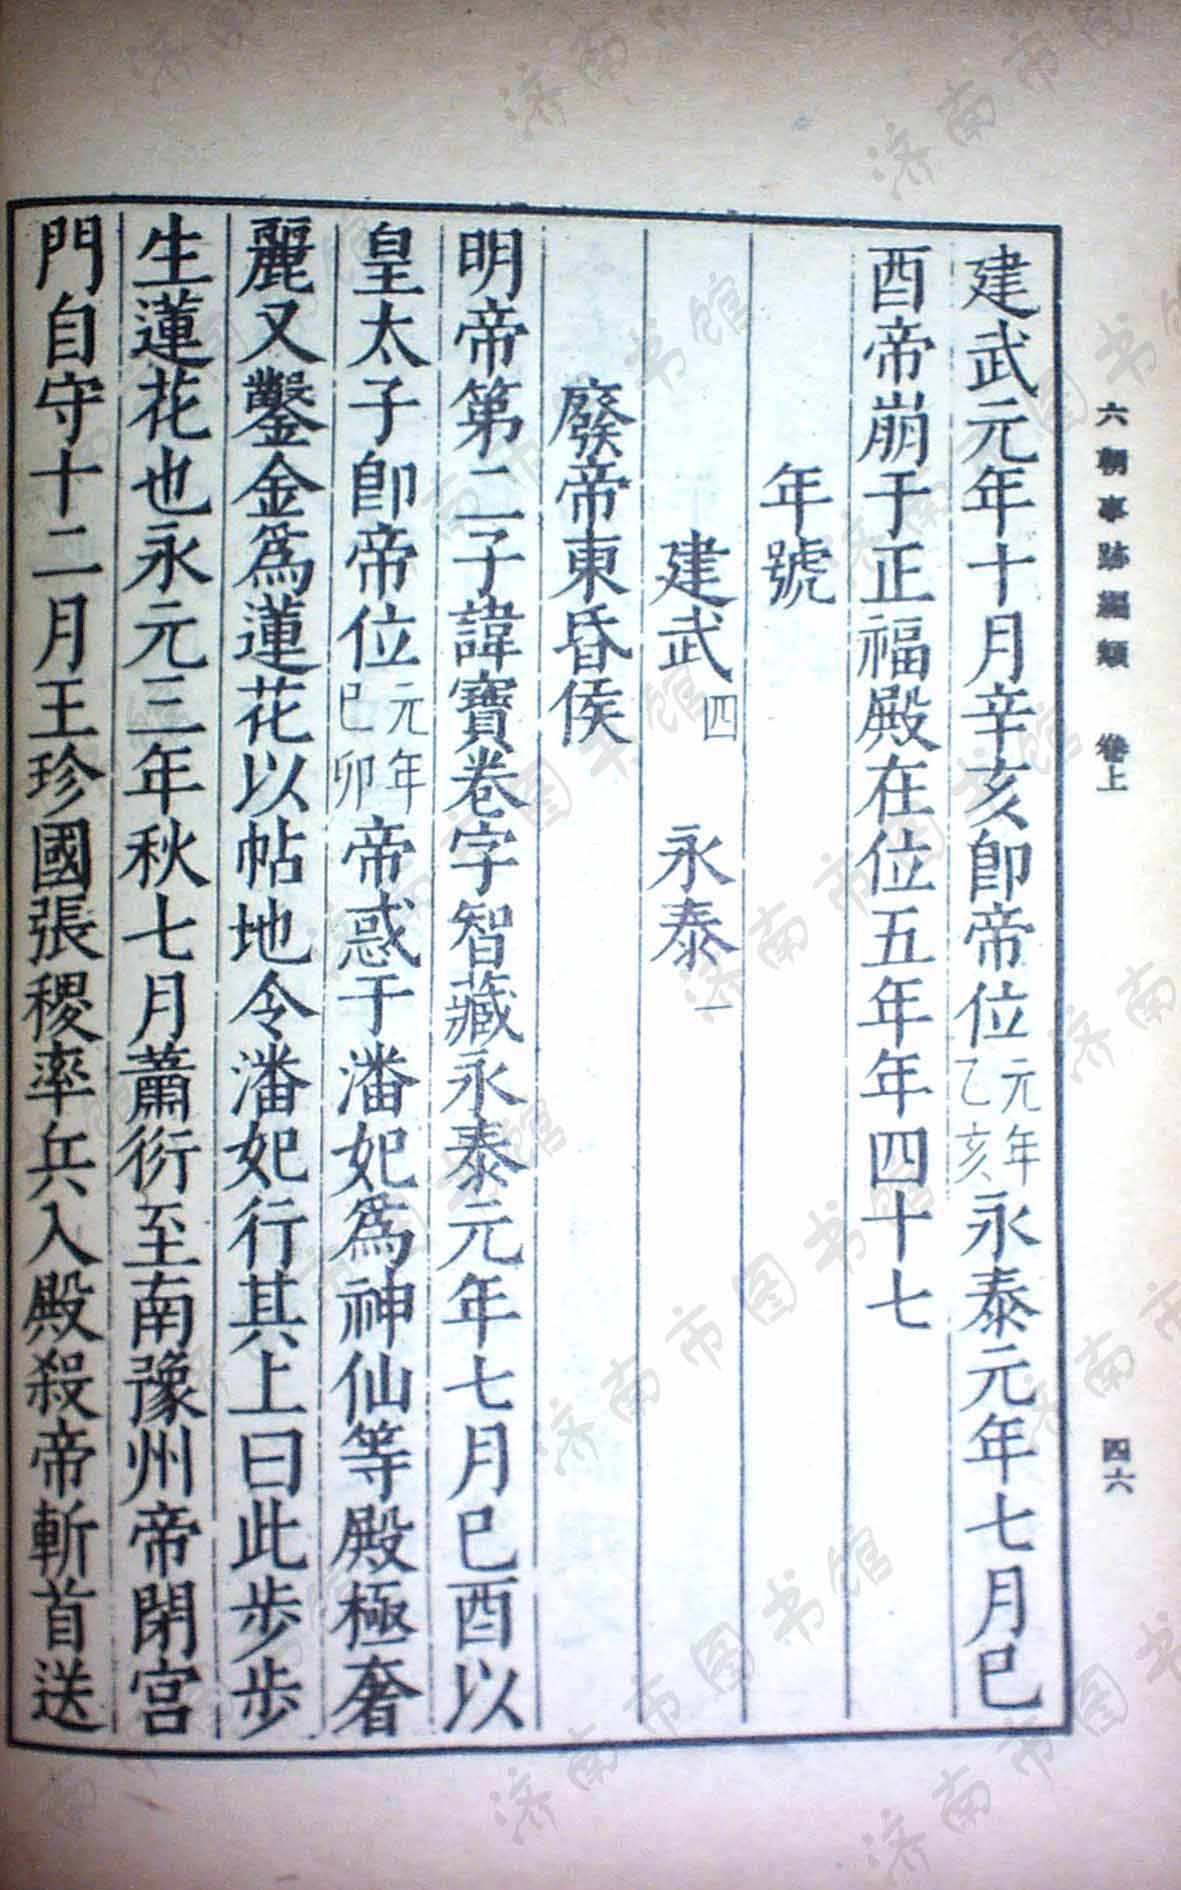 六朝事跡編類 卷上 四六
建武元年十月辛亥卽帝位元年乙亥永泰元年七月已
酉帝崩于正福殿在位五年年四十七
年號
建武四 永泰一
廢帝東昏侯
明帝第二子諱寶卷字智藏永泰元年七月已酉以
皇太子卽帝位元年已卯帝惑于潘妃爲神仙等殿極奢
麗又鑿金爲蓮花以帖地令潘妃行其上曰此步步
生蓮花也永元三年秋七月蕭衍至南豫州帝閉宮
門自守十二月王珍國張稷率兵入殿殺帝斬首送
济南市图书馆